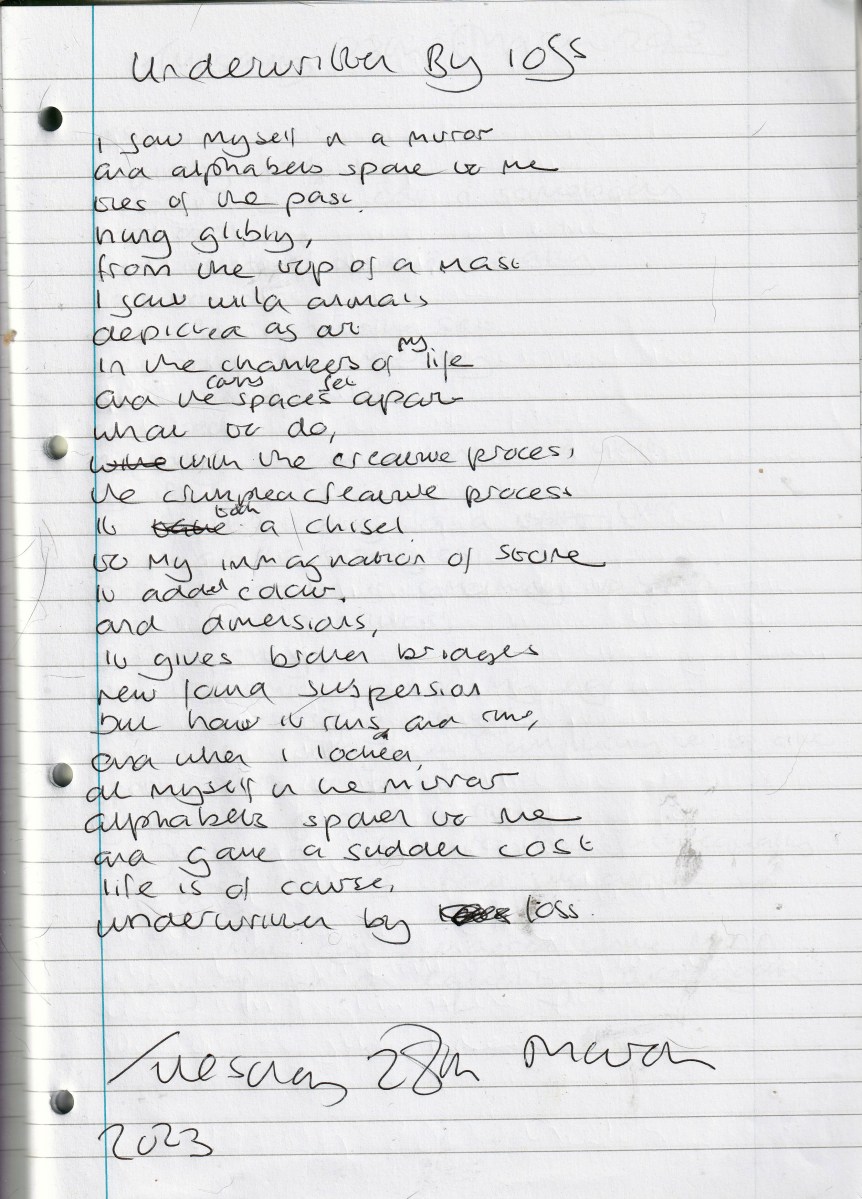 Underwritten By loss
I saw myself in a mirror
and alphabets spoke to me
ties of the past,
hung glibly,
from the top of a mast
I saw wild animals
depicted as art
in the chambers of my life
and the caves spaces set apart
what to do,
with the creative process,
the crumpled creative process
it took a chisel
to my immagination of stone
it added colour,
and dimensions,
it gives broken bridges
new found suspension
but how it runs and runs,
and when I looked,
at myself in the mirror
alphabets spoken to me
and gave a sudden cost
life is of course,
underwritten by loss.
Tuesday 28th March
2023